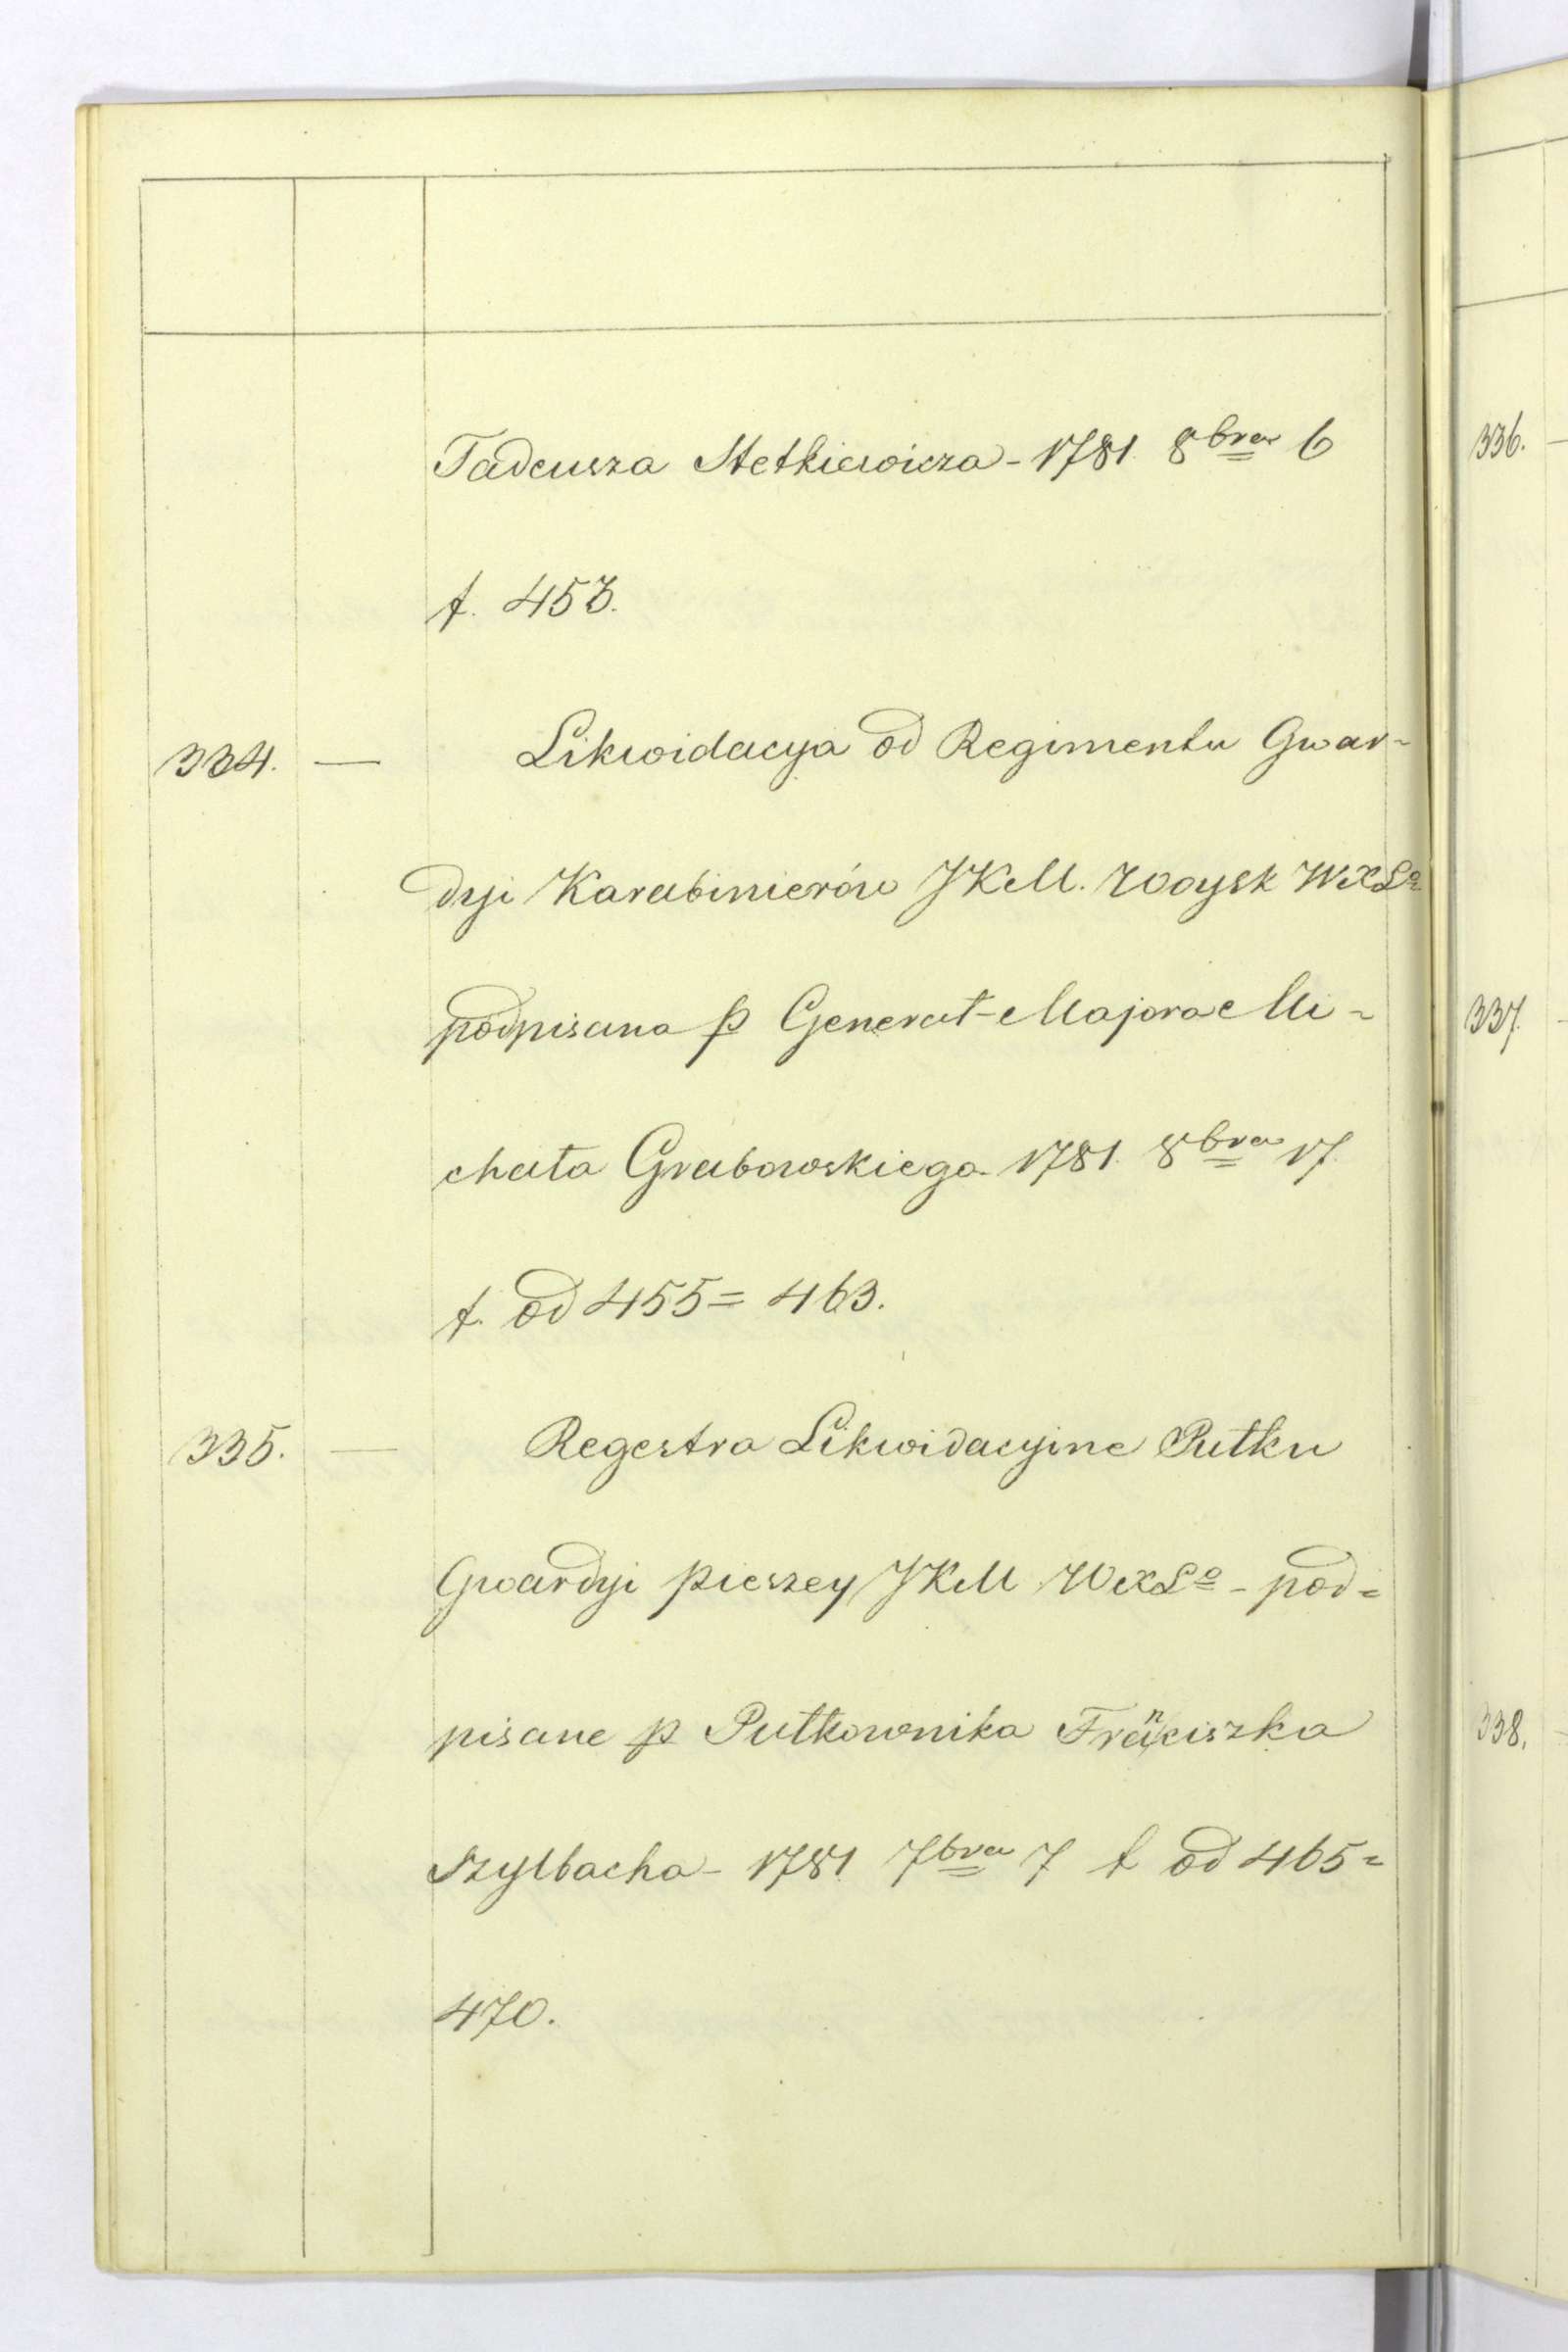 Tadeusza Stetkiewicza - 1781. 8bra 6
f. 453.
334. — Likwidacya od Regimentu Gwar-
dyi Karabinierów JKM. Woysk WXLo
podpisana p Generał-Majora Mi-
chała Grabowskiego 1781. 8bra 17.
f. od 455 = 463.
335. — Regestra Likwidacyine Pułku
Gwardyi pieszey JKM WXLo - pod=
pisane p Pułkownika Franciszka
Szylbacha - 1781. 7bra 7 f od 465=
470.
336.
337.
338.